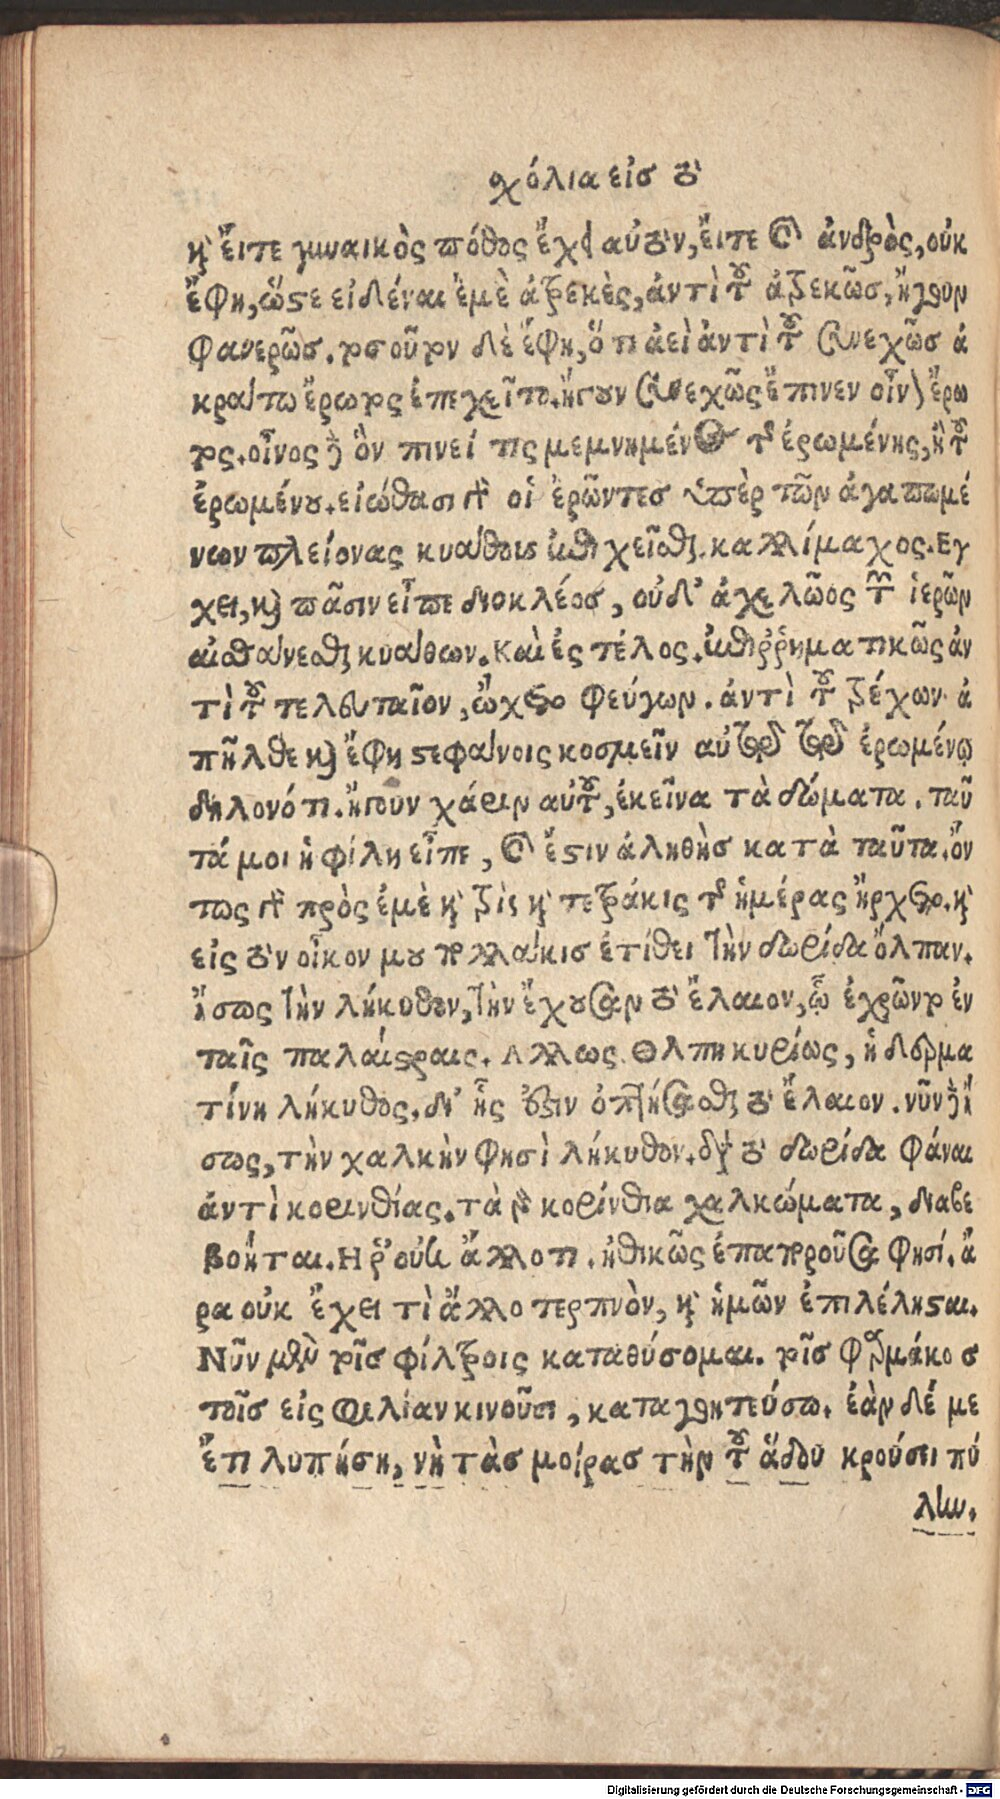 σχόλια εἰσ τὸ
κỳ εἴτε γυναικὸς πόθος ἔχει αὐτὸν, εἴτε καὶ ἀνδρὸς, οὐκ
ἔφη, ὥστε εἰδέναι ἐμὲ ἀτρεκὲς, ἀντὶ τοῦ ἀτρεκῶσ, ἤγουν
φανερῶσ. τοσοῦτον δὲ ἔφη, ὅτι ἀεὶ ἀντὶ τοῦ συνεχῶσ ἀ
κράτω ἔρωτος ἐπεχεῖτο. ἤγουν συνεχῶς ἔπινεν οἶνον ἔρω
τος. οἶνος δὲ ὃν πινεί τις μεμνημένος τῆς ἐρωμένης, ἢ τοῦ
ἐρωμένου. εἰώθασι γὰρ οἱ ἐρῶντεσ ὑπὲρ τῶν ἀγαπωμέ
νων πλείονας κυάθους ἐπιχεῖσθαι. καλλίμαχος. Εγ
χει, καὶ πᾶσιν εἶπε διοκλέοσ, οὐδ' ἀχελῶος τῶν ἱερῶν
αἰσθάνεσθαι κυάθων. Καὶ ἐς τέλος. ἐπιῤῥηματικῶς ἀν
τὶ τοῦ τελευταῖον, ὤχετο φεύγων. ἀντὶ τοῦ τρέχων ἀ
πῆλθε καὶ ἔφη στεφάνοις κοσμεῖν αὐτῷ τῷ ἐρωμένῳ
δηλονότι. ἤγουν χάριν αὐτοῦ, ἐκεῖνα τὰ δώματα. ταῦ
τά μοι ἡ φίλη εἶπε, καὶ ἔστιν ἀληθὴσ κατὰ ταῦτα. ὄν
τως γὰρ πρὸς ἐμὲ καὶ τρὶς καὶ τετράκις τῆς ἡμέρας ἤρχετο. καὶ
εἰς τὸν οἶκον μου πολλάκισ ἐτίθει τὴν δωρίδα ὄλπαν.
ἴσως τὴν λήκυθον, τὴν ἔχουσαν τὸ ἔλαιον, ᾧ ἐχρῶντο ἐν
ταῖς παλαίστραις. Αλλως. Ολπη κυρίως, ἡ δερμα
τίνη λήκυθος, δι' ἧς ἔστιν ὀπτήσασθαι τὸ ἔλαιον. νῦν δὲ ἴ
σως, τὴν χαλκὴν φησὶ λήκυθον. διὰ τὸ δωρίδα φάναι
ἀντὶ κορινθίας. τὰ γὰρ κορίνθια χαλκώματα, διαβε
βοήται. Η ῥ' οὐκ ἄλλο τι. ἠθικῶς ἐπαποροῦσα φησί. ἄ
ρα οὐκ ἔχει τὶ ἄλλο τερπνὸν, καὶ ἡμῶν ἐπιλέλησται.
Νῦν μὲν τοῖσ φίλτροις καταθύσομαι. τοῖσ φαρμάκοισ
τοῖσ εἰς φιλίαν κινοῦσι, καταγοητεύσω. ἐὰν δέ με
ἔτι λυπήση, νὴ τὰσ μοίρασ τὴν τοῦ ἅδου κρούσει πύ
λην.